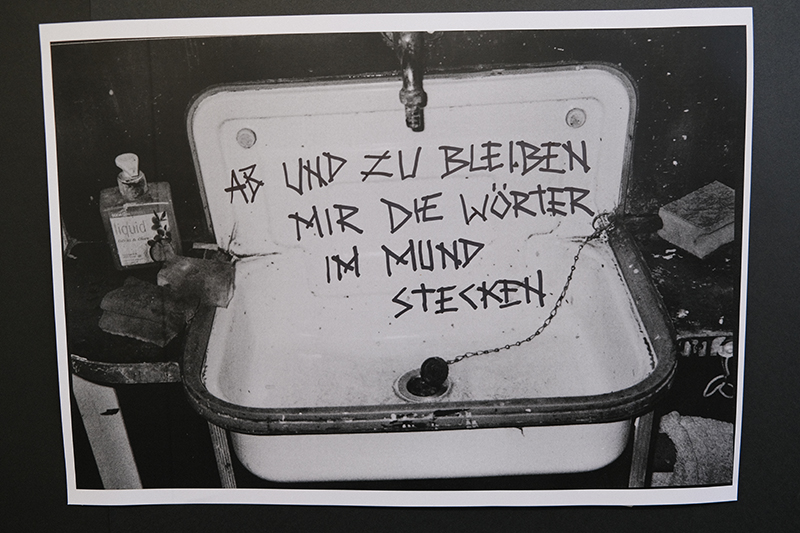 AB UND ZU BLEIBEN
MIR DIE WÖRTER
IM MUND
STECKEN
liquid